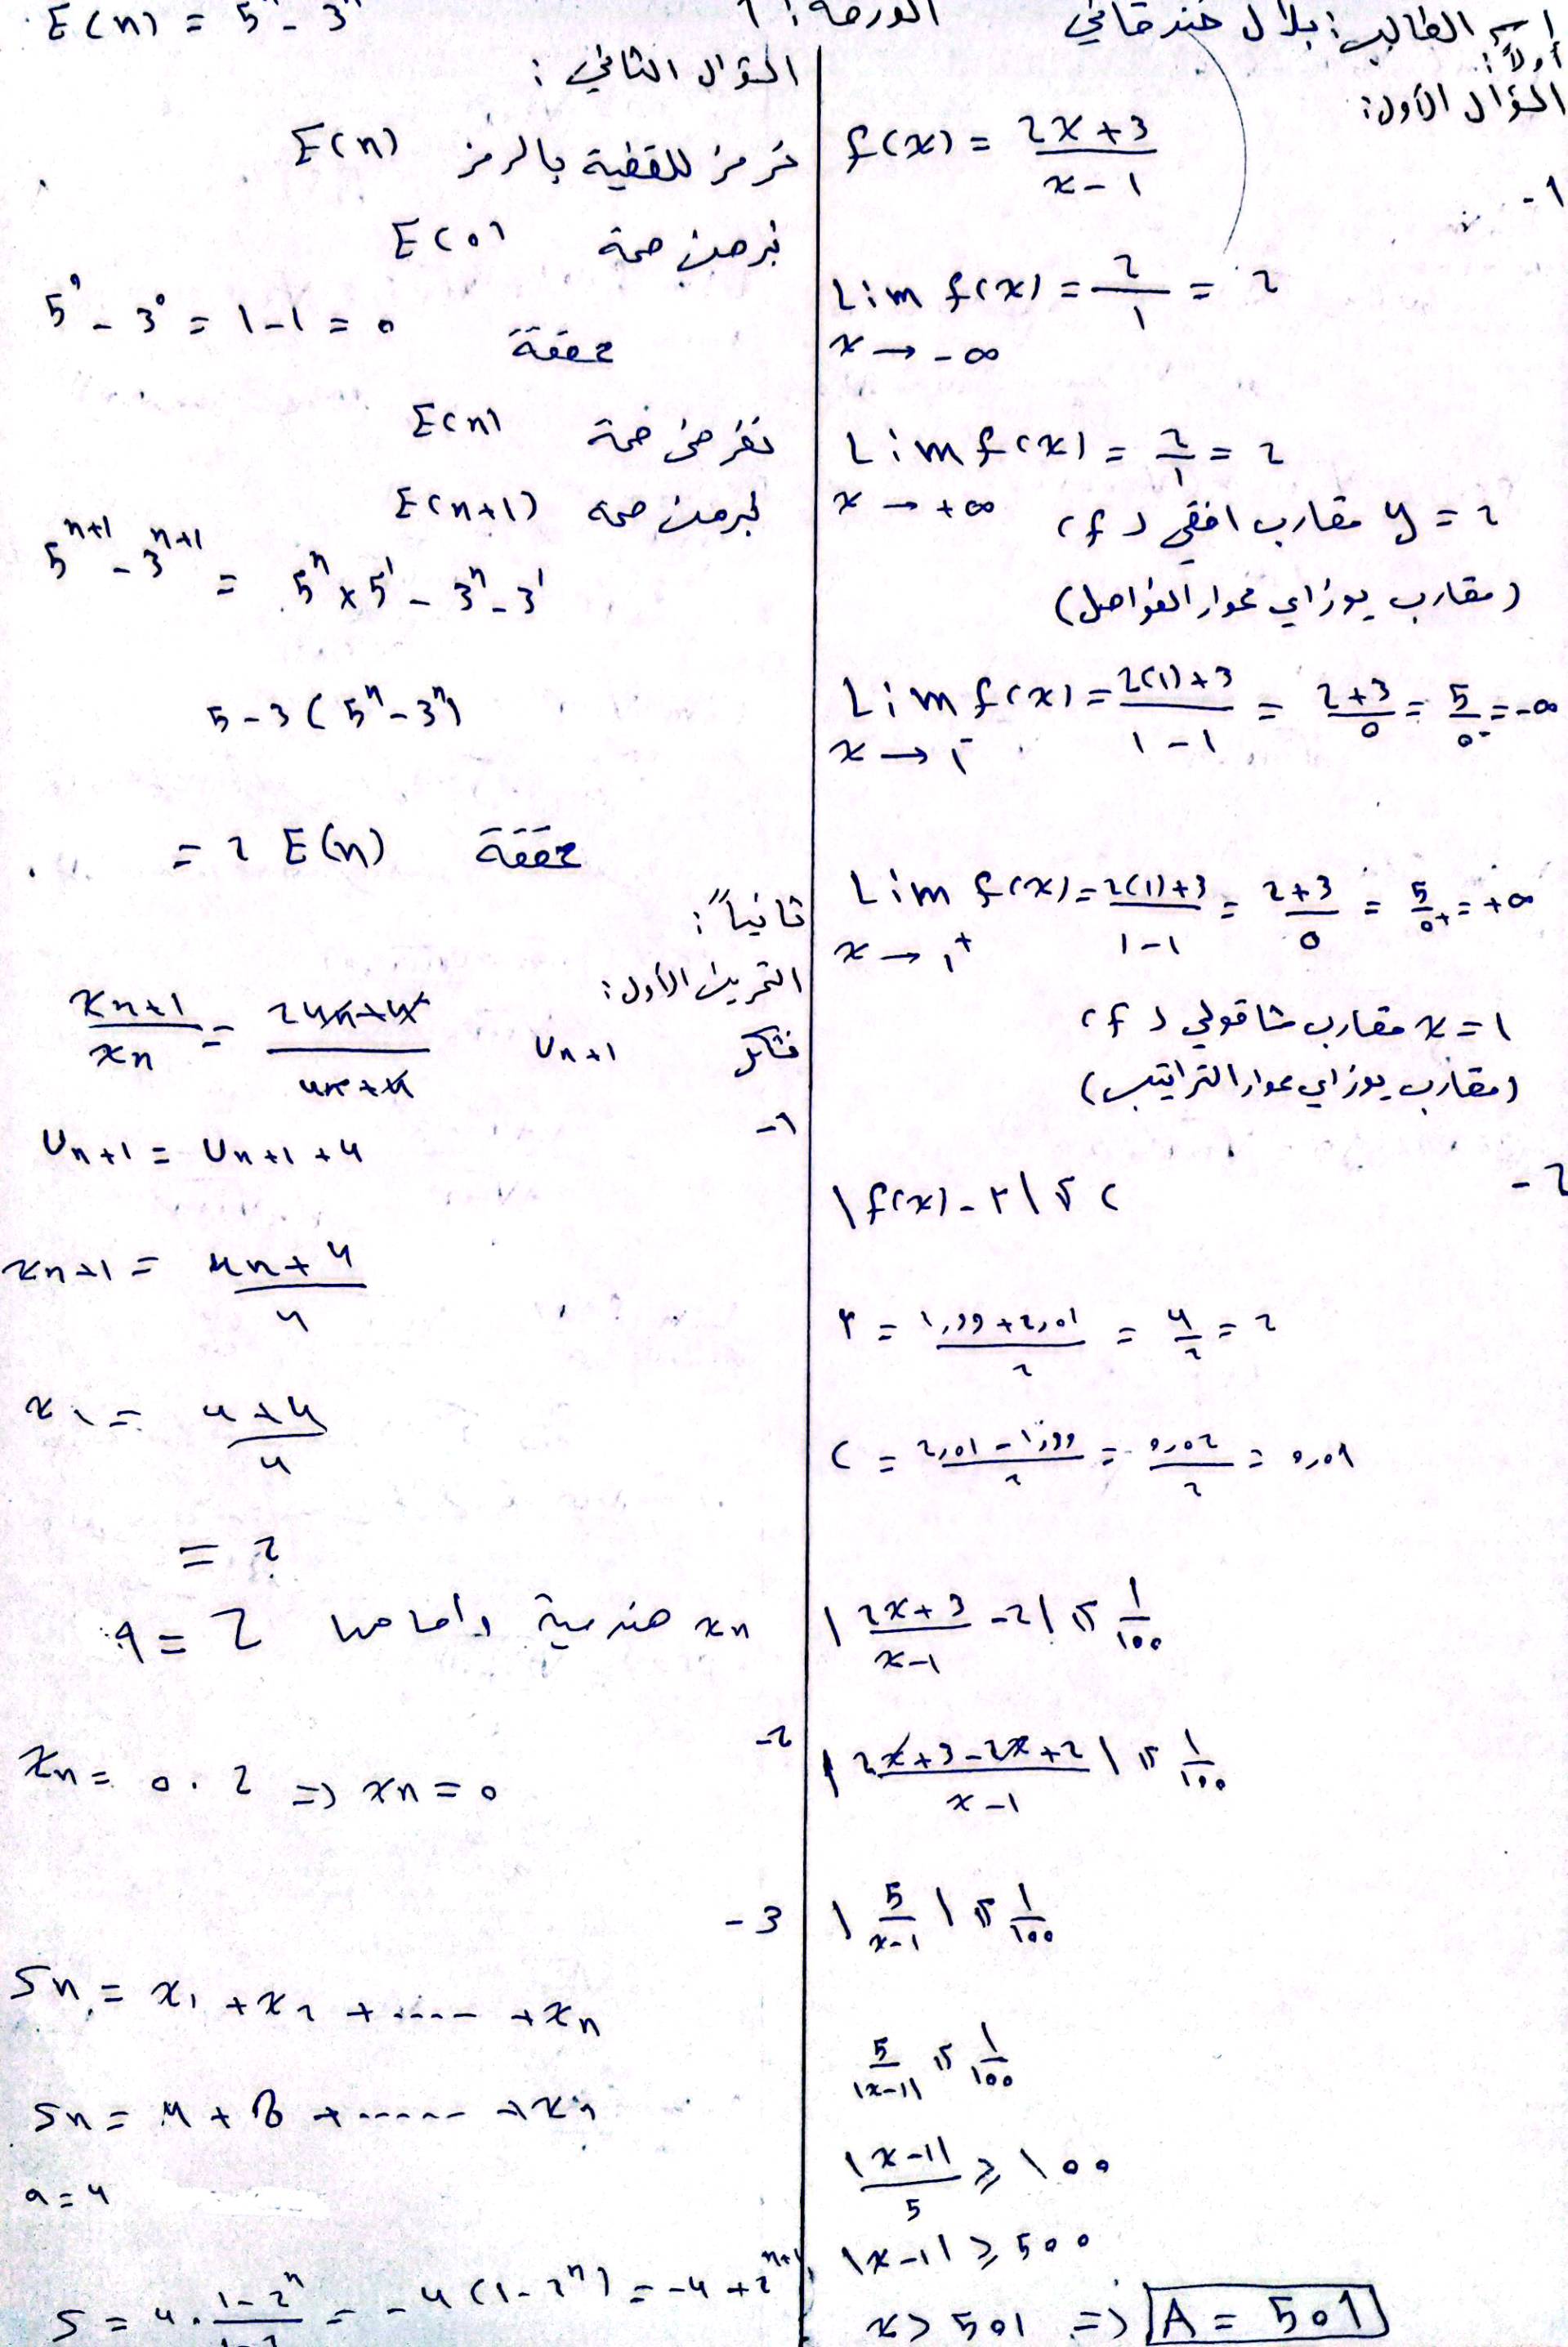 إسم الطالب: بلال خندقاني الورقة: 1
أولاً:
السؤال الأول:
-1
f(x) = \frac{2x+3}{x-1}
Lim f(x) = \frac{2}{1} = 2
x → -∞
Lim f(x) = \frac{2}{1} = 2
x → +∞
y = 2 مقارب افقي لـ (f
(مقارب يوزاي محوار الفواصل)
Lim f(x) = \frac{2(1)+3}{1-1} = \frac{2+3}{0} = \frac{5}{0^-} = -∞
x → 1^-
Lim f(x) = \frac{2(1)+3}{1-1} = \frac{2+3}{0} = \frac{5}{0^+} = +∞
x → 1^+
x = 1 مقارب شاقولي لـ (f
(مقارب يوزاي محوار التراتيب)
-2
|f(x) - ٢| < r
٢ = \frac{1,99+2,01}{2} = \frac{4}{2} = 2
r = \frac{2,01-1,99}{2} = \frac{0,02}{2} = 0,01
|\frac{2x+3}{x-1} - 2| < \frac{1}{100}
|\frac{2x+3-2x+2}{x-1}| < \frac{1}{100}
|\frac{5}{x-1}| < \frac{1}{100}
\frac{5}{|x-1|} < \frac{1}{100}
\frac{|x-1|}{5} > 100
|x-1| > 500
x > 501 => A = 501
E(n) = 5^n - 3^n
السؤال الثاني:
نرمز للقضية بالرمز E(n)
نبرهن صحة E(0)
5^0 - 3^0 = 1-1 = 0 محققة
نفرض صحة E(n)
نبرهن صحة E(n+1)
5^{n+1} - 3^{n+1} = 5^n × 5^1 - 3^n - 3^1
5-3(5^n - 3^n)
= 2 E(n) محققة
ثانياً:
التمرين الأول:
-1
U_{n+1}
\frac{x_{n+1}}{x_n} =
U_{n+1} = U_{n+1} + 4
x_{n+1} = \frac{4n+4}{4}
x_1 = \frac{4+4}{4}
= 2
x_n هندسية واساسها q = 2
-2
x_n = 0 . 2 => x_n = 0
-3
S_n = x_1 + x_2 + ..... + x_n
S_n = 4 + 8 + ..... + x_n
a = 4
S = 4 . \frac{1-2^n}{1-2} = -4(1-2^n) = -4 + 2^{n+1}